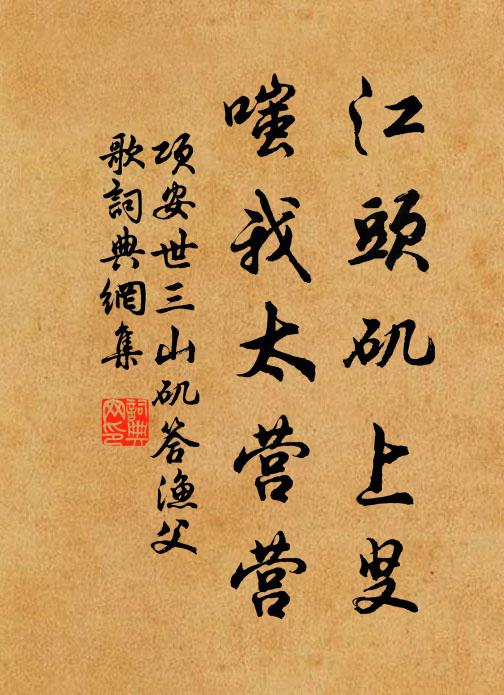 江頭矶上叟
嗤我太营营
项安世三山矶答漁父
歌詞典網集
詞典
网印